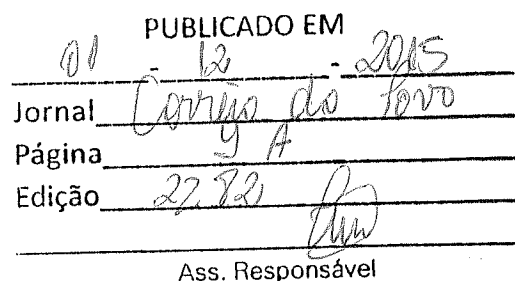 PUBLICADO EM
01 - 12 - 2015
Jornal Correio do Povo
Página 9 A
Edição
Ass. Responsável